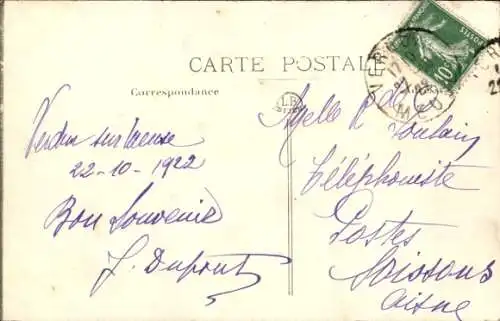 CARTE POSTALE
Correspondance
Verdun sur Meuse
22-10-1922
Bon Souvenir
J. Dupont
Melle R
Poulain
Téléphoniste
Postes
Soissons
Aisne
10